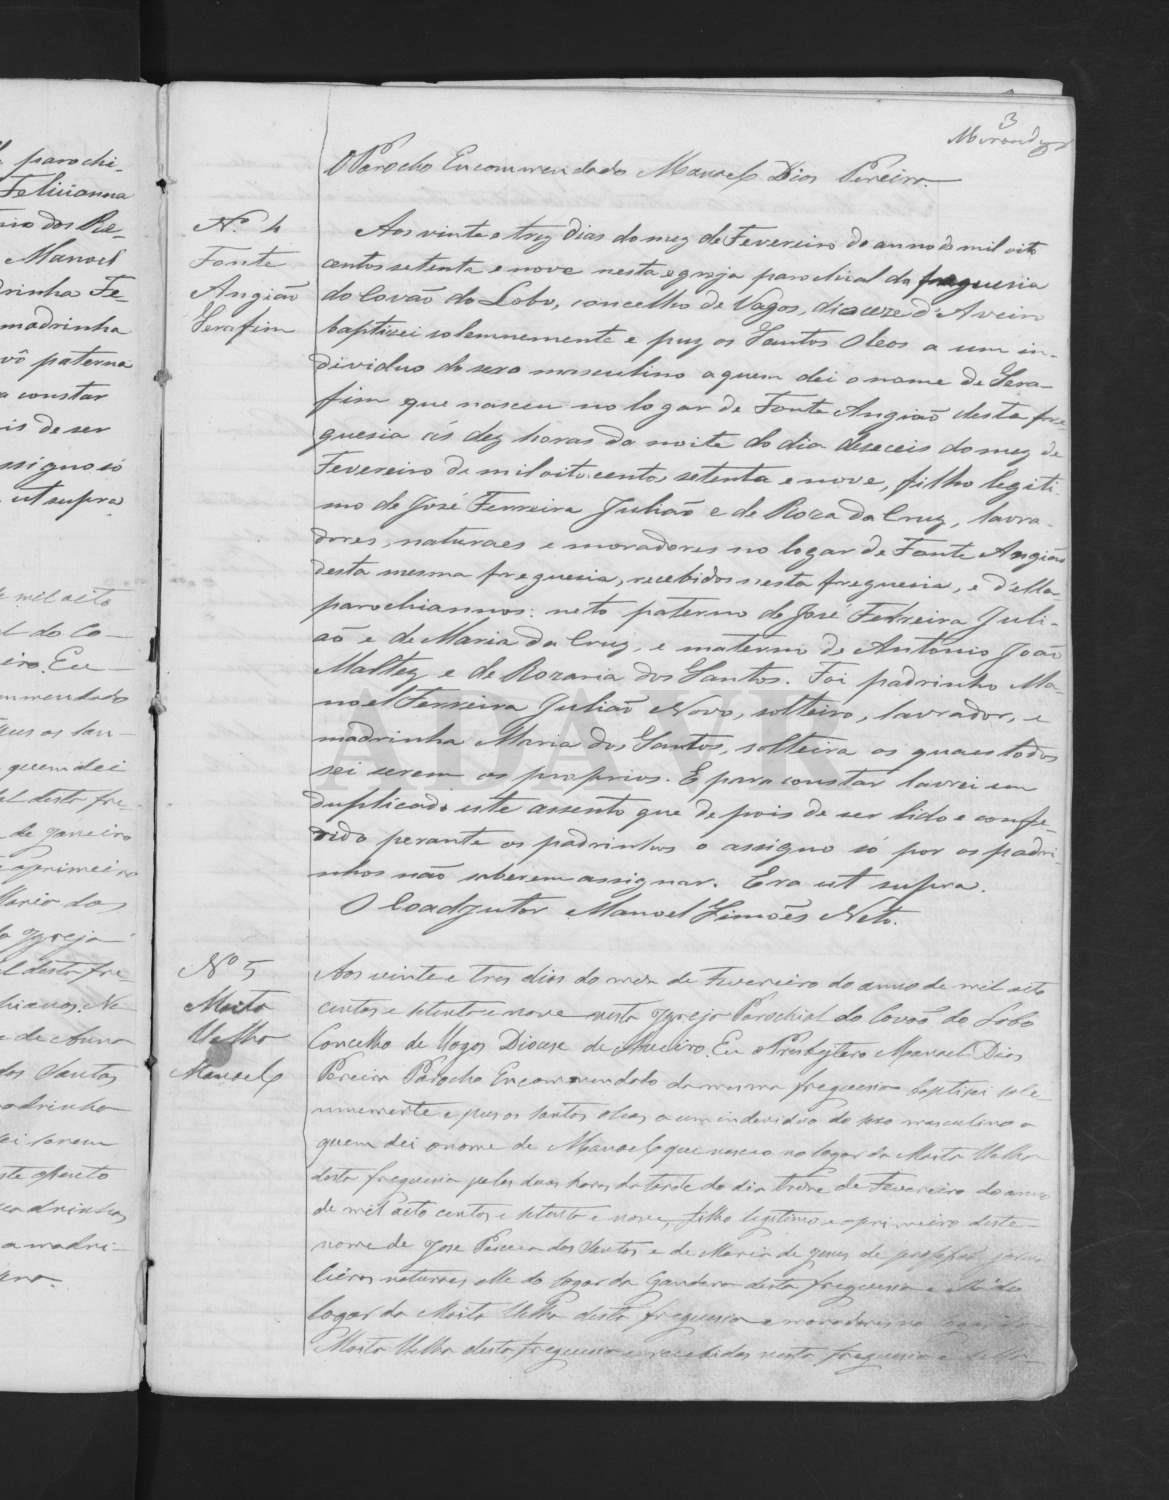 3
O Parocho Encommendado Manoel Dias Pereira.
N.º 4
Fonte
Angião
Serafim
Aos vinte e trez dias do mez de Fevereiro do anno de mil oito
centos setenta e nove nesta egreja parochial da freguesia
do Covão do Lobo, concelho de Vagos, diocese d'Aveiro
baptisei solemnemente e puz os Santos Oleos a um in-
dividuo do sexo masculino a quem dei o nome de Sera-
fim que nasceu no logar de Fonte Angião desta fre
guesia ás dez horas da noite do dia deseceis do mez de
Fevereiro de mil oito centos setenta e nove, filho legiti-
mo de José Ferreira Julião e de Roza da Cruz, lavra-
dores, naturaes e moradores no logar de Fonte Angião
desta mesma freguesia, recebidos nesta freguesia, e d'ella
parochiannos: neto paterno de José Ferreira Juli-
aõ e de Maria da Cruz, e materno de Antonio João
Maltez e de Rozaria dos Santos. Foi padrinho Ma-
noel Ferreira Julião Novo, solteiro, lavrador, e
madrinha Maria dos Santos, solteira os quaes todos
sei serem os proprios. E para constar lavrei em
duplicado este assento que depois de ser lido e confe-
rido perante os padrinhos o assigno só por os padri-
nhos não saberem assignar. Era ut supra.
O Coadjutor Manoel Simões Neto.
Nº 5
Moita
Velha
Manoel
Aos vinte e tres dias do mez de Fevereiro do anno de mil oito
centos e setenta e nove nesta Igreja Parochial do Covão do Lobo
Concelho de Vagos Diocese de Aveiro. Eu o Presbytero Manoel Dias
Pereira Parocho Encommendado da mesma freguesia baptisei sole-
mnemente e pus os santos oleos a um individuo do sexo masculino a
quem dei o nome de Manoel que nasceo no logar da Moita Velha
desta freguesia pelas duas horas da tarde do dia treze de Fevereiro do anno
de mil oito centos e setenta e nove, filho legitimo e o primeiro deste
nome de Jose Pereira dos Santos e de Maria de Jesus de
naturaes elle do logar da Gandara desta freguesia e ella do
logar da Moita Velha desta freguesia e moradores no logar da
Moita Velha desta freguesia e recebidos nesta freguesia e della
parochi-
Felicianna
Manoel
madrinha
vô paterna
a constar
is de ser
ut supra
de Janeiro
ADAVR